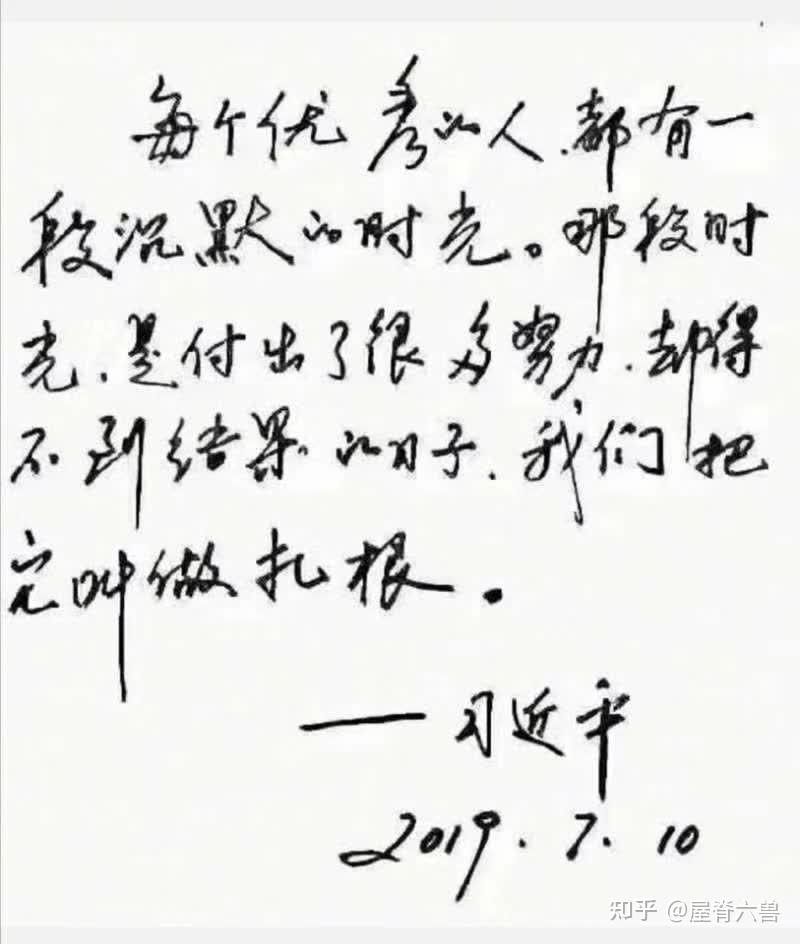 每个优秀的人、都有一
段沉默的时光。那段时
光、是付出了很多努力、却得
不到结果的日子、我们把
它叫做扎根。
——习近平
2019.7.10
知乎 @屋脊六兽